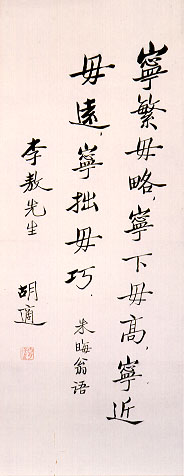 寧繁毋略，寧下毋高，寧近
毋遠，寧拙毋巧．
朱晦翁语
李敖先生
胡適